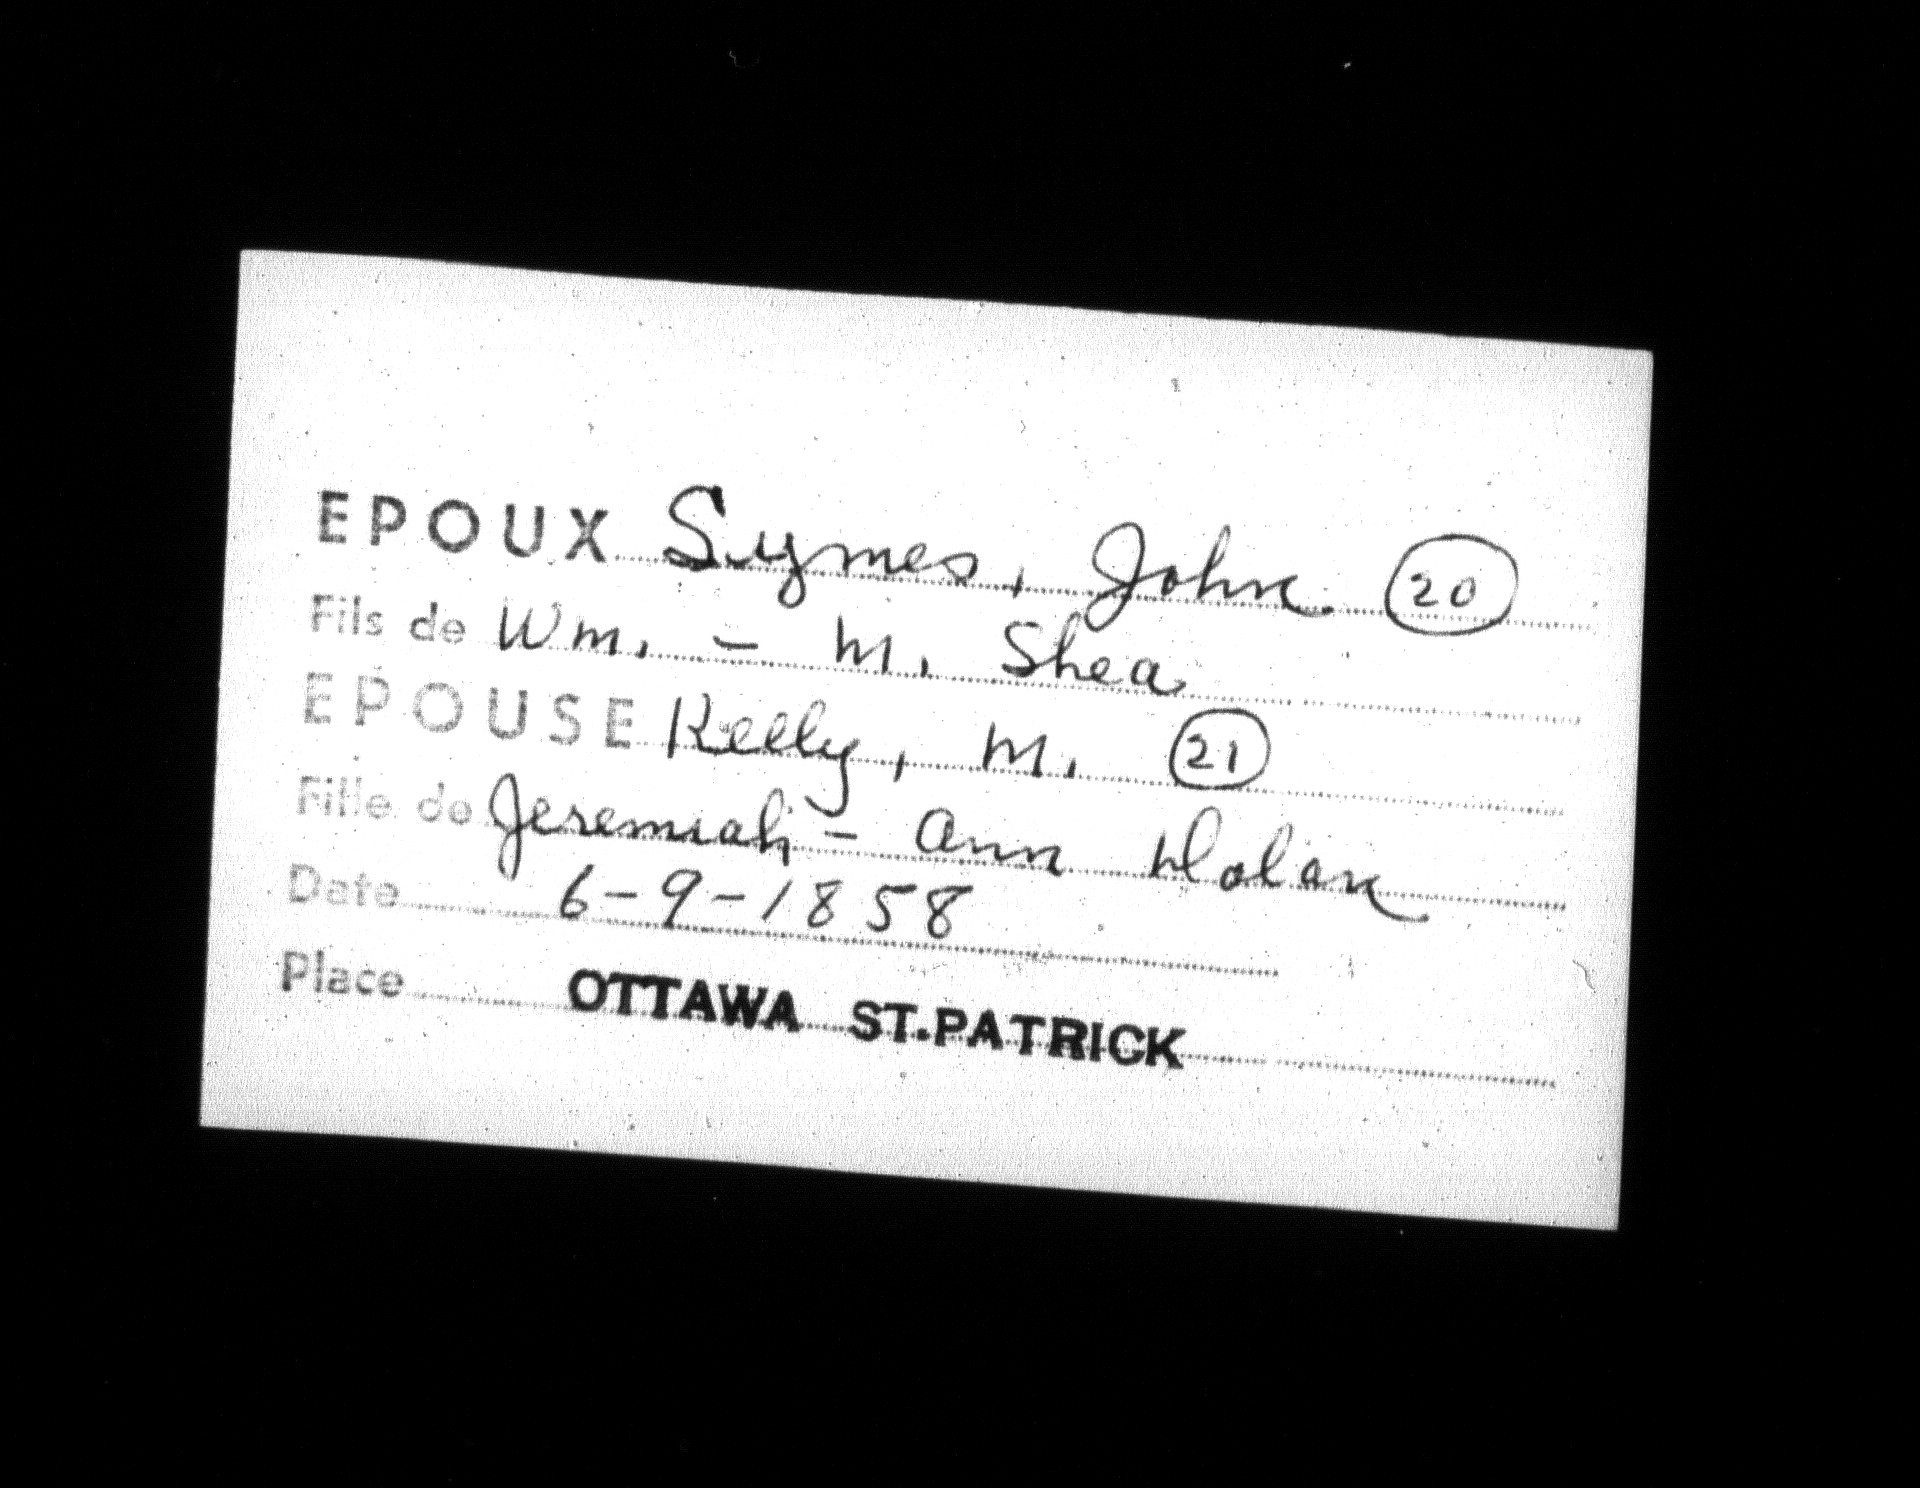 EPOUX Symes, John 20
Fils de Wm. - M. Shea
EPOUSE Kelly, M. 21
Fille de Jeremiah - Ann Nolan
Date 6-9-1858
Place OTTAWA ST.PATRICK